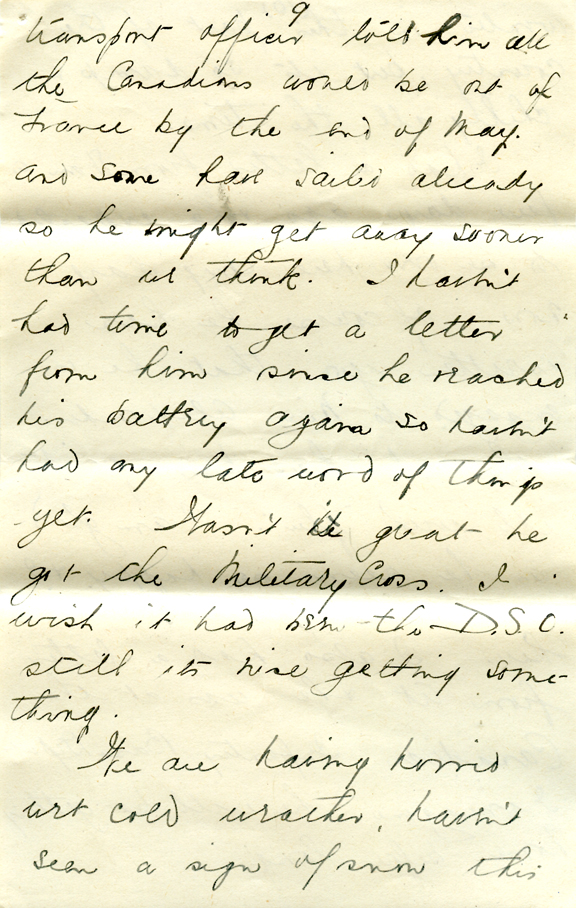 9
transport officer told him all
the Canadians would be out of
France by the end of May.
and some have sailed already
so he might get away sooner
than we think. I hasn't
had time to get a letter
from him since he reached
his battery again so hasn't
had any late word of things
yet. Wasn't it great he
got the Military Cross. I
wish it had been the D.S.O.
still its nice getting some-
thing.
We are having horrid
wet cold weather, hasn't
seen a sign of snow this